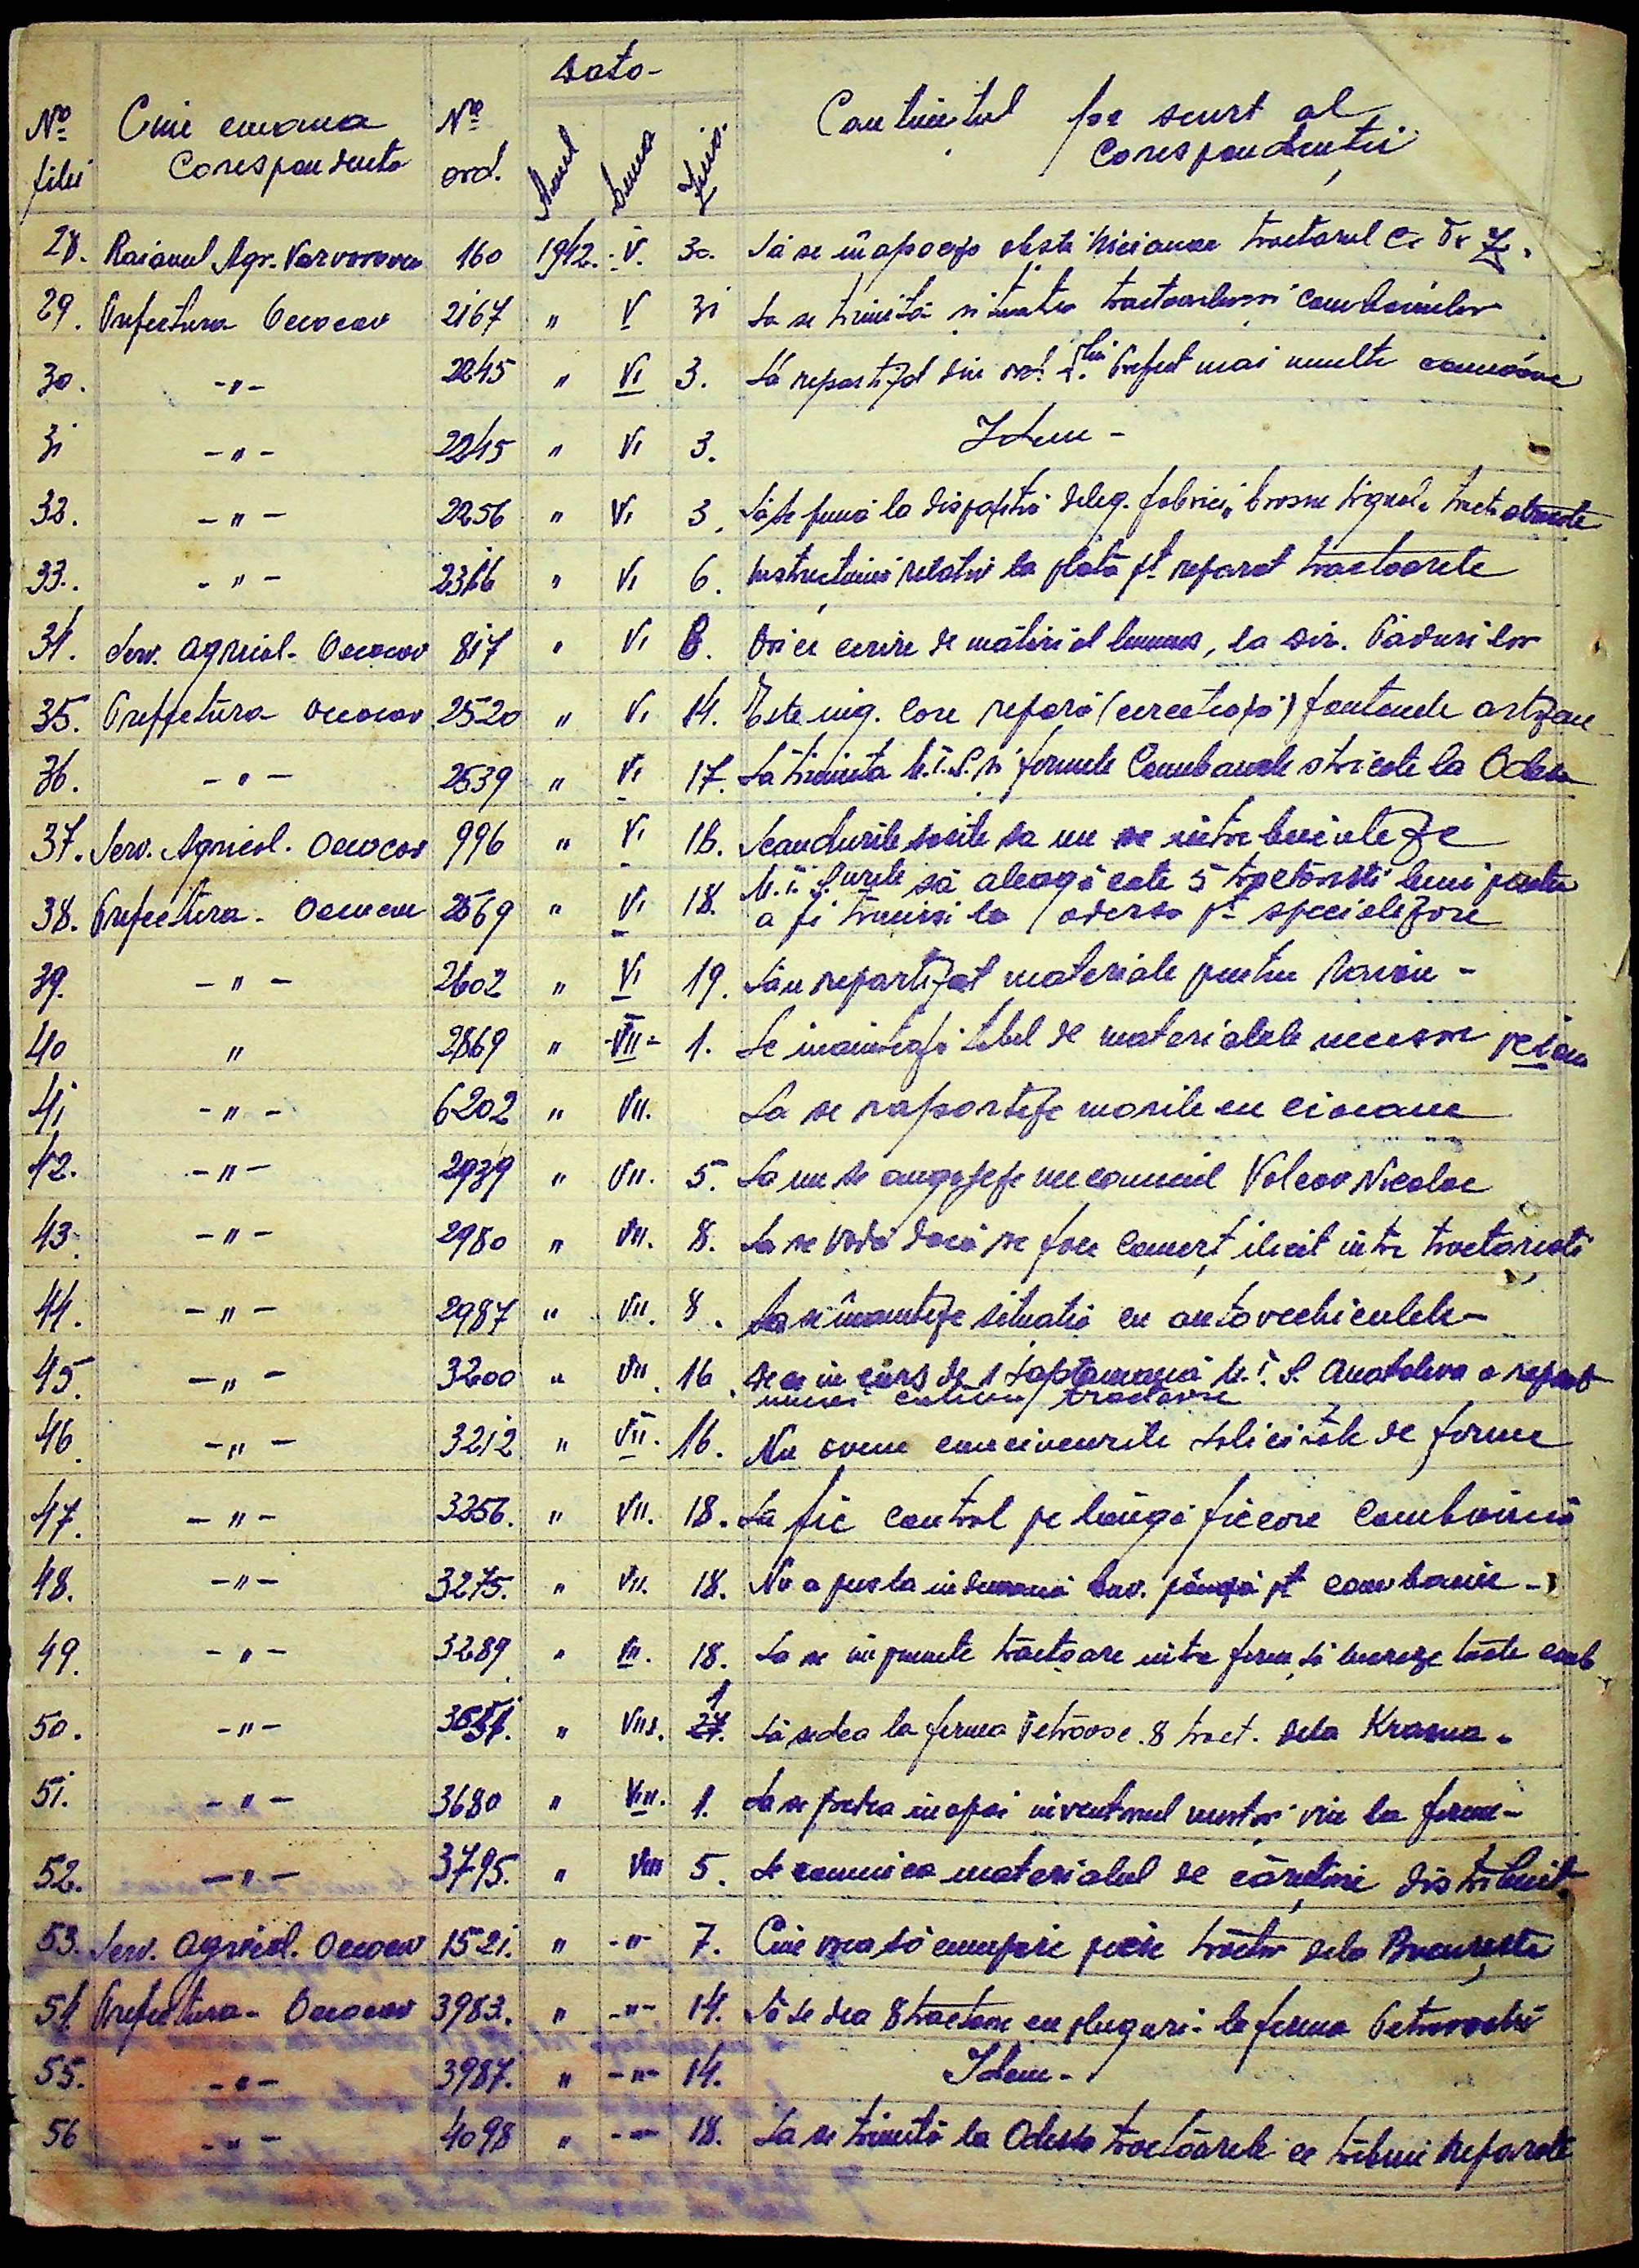 Data
No filei Cine emana Corespondenta No ord. Anul Luna Ziua Continutul pe scurt al Corespondentii
28. Raionul Agr. Varvarovca 160 1942. V. 30. Să se înapoeze tractorul C.
29. Prefectura Oceacov 2167 " V 31 Sa se trimită situatia tractoarelor si combainelor
30. -"- 2245 " VI 3. Sa repartizat din ord. Prefect mai multe camioane
31 -"- 2245 " VI 3. Idem -
32. -"- 2256 " VI 3. Să se pună la dispoziția deleg. fabricei
33. -"- 2366 " VI 6. Instructiuni relativ la plata pt reparat tractoarele
34. Serv. Agricol - Oceacov 817 " VI 8. Orice cerere de material lemnos, la Dir. Pădurilor
35. Preffctura Oceacov 2520 " VI 14. Este ing. care repară (cercetează) fantanele artizane
36. -"- 2539 " VI 17. Să trimeata M.T.S. și fermele Combainele stricate la Odesa
37. Serv. Agricol. Oceacov 996 " VI 18. Scandurile sosite sa nu se intrebuinteze
38. Prefectura - Oceacov 2569 " VI 18. M.T.S. urile să aleagă cate 5 tractoristi buni pentru
a fi trimisi la Odersa pt specializare
39. -"- 2602 " VI 19. Sau repartizat materiale pentru Raion -
40 " 2869 " VII 1. Se inainteaza tabel de materialele necesare
41 -"- 6202 " VII. Sa se raporteze morile cu ciocane
42. -"- 2939 " VII. 5. Sa nu se angajeze mecanicul Volcov Nicolae
43. -"- 2980 " VII. 8. Sa se vadă dacă se face comerț ilicit intre tractoristi
44. -"- 2987 " VII. 8. Sa se înainteze situatia cu autovechiculele -
45. -"- 3200 " VII. 16. De ce in curs de 1 saptamană M.T.S. a reparat
numai tractoare
46. -"- 3212 " VII. 16. Nu avem cauciucurile solicitate de ferme
47. -"- 3256. " VII. 18. Sa fie control pe lângă fiecare Combaină
48. -"- 3275. " VII. 18. Nu a pus la indemană pânză pt combaine -
49. -"- 3289 " VII. 18. Sa se imprumute tractoare intre ferme, să lucreze toate comb
50. -"- " VIII. 1 27. Să se dea la ferma Petroose. 8 tract. dela Krasna.
51. -"- 3680 " VIII. 1. Sa se predea inapoi inventarul nostru viu la ferme -
52. -"- 3795. " VIII 5. Se comunica materialul de cărutărie distribuit.
53. Serv. Agricol. Oceacov 1521. " -"- 7. Cine vrea să cumpere piese tractor dela București
54. Prefectura - Oceacov 3983. " -"- 14. Să se dea 8 tractoare cu pluguri la ferma Petrovschi
55. -"- 3987. " -"- 14. Idem -
56 -"- 4098 " -"- 18. Sa se trimită la Odessa tractoarele ce trebuie reparate